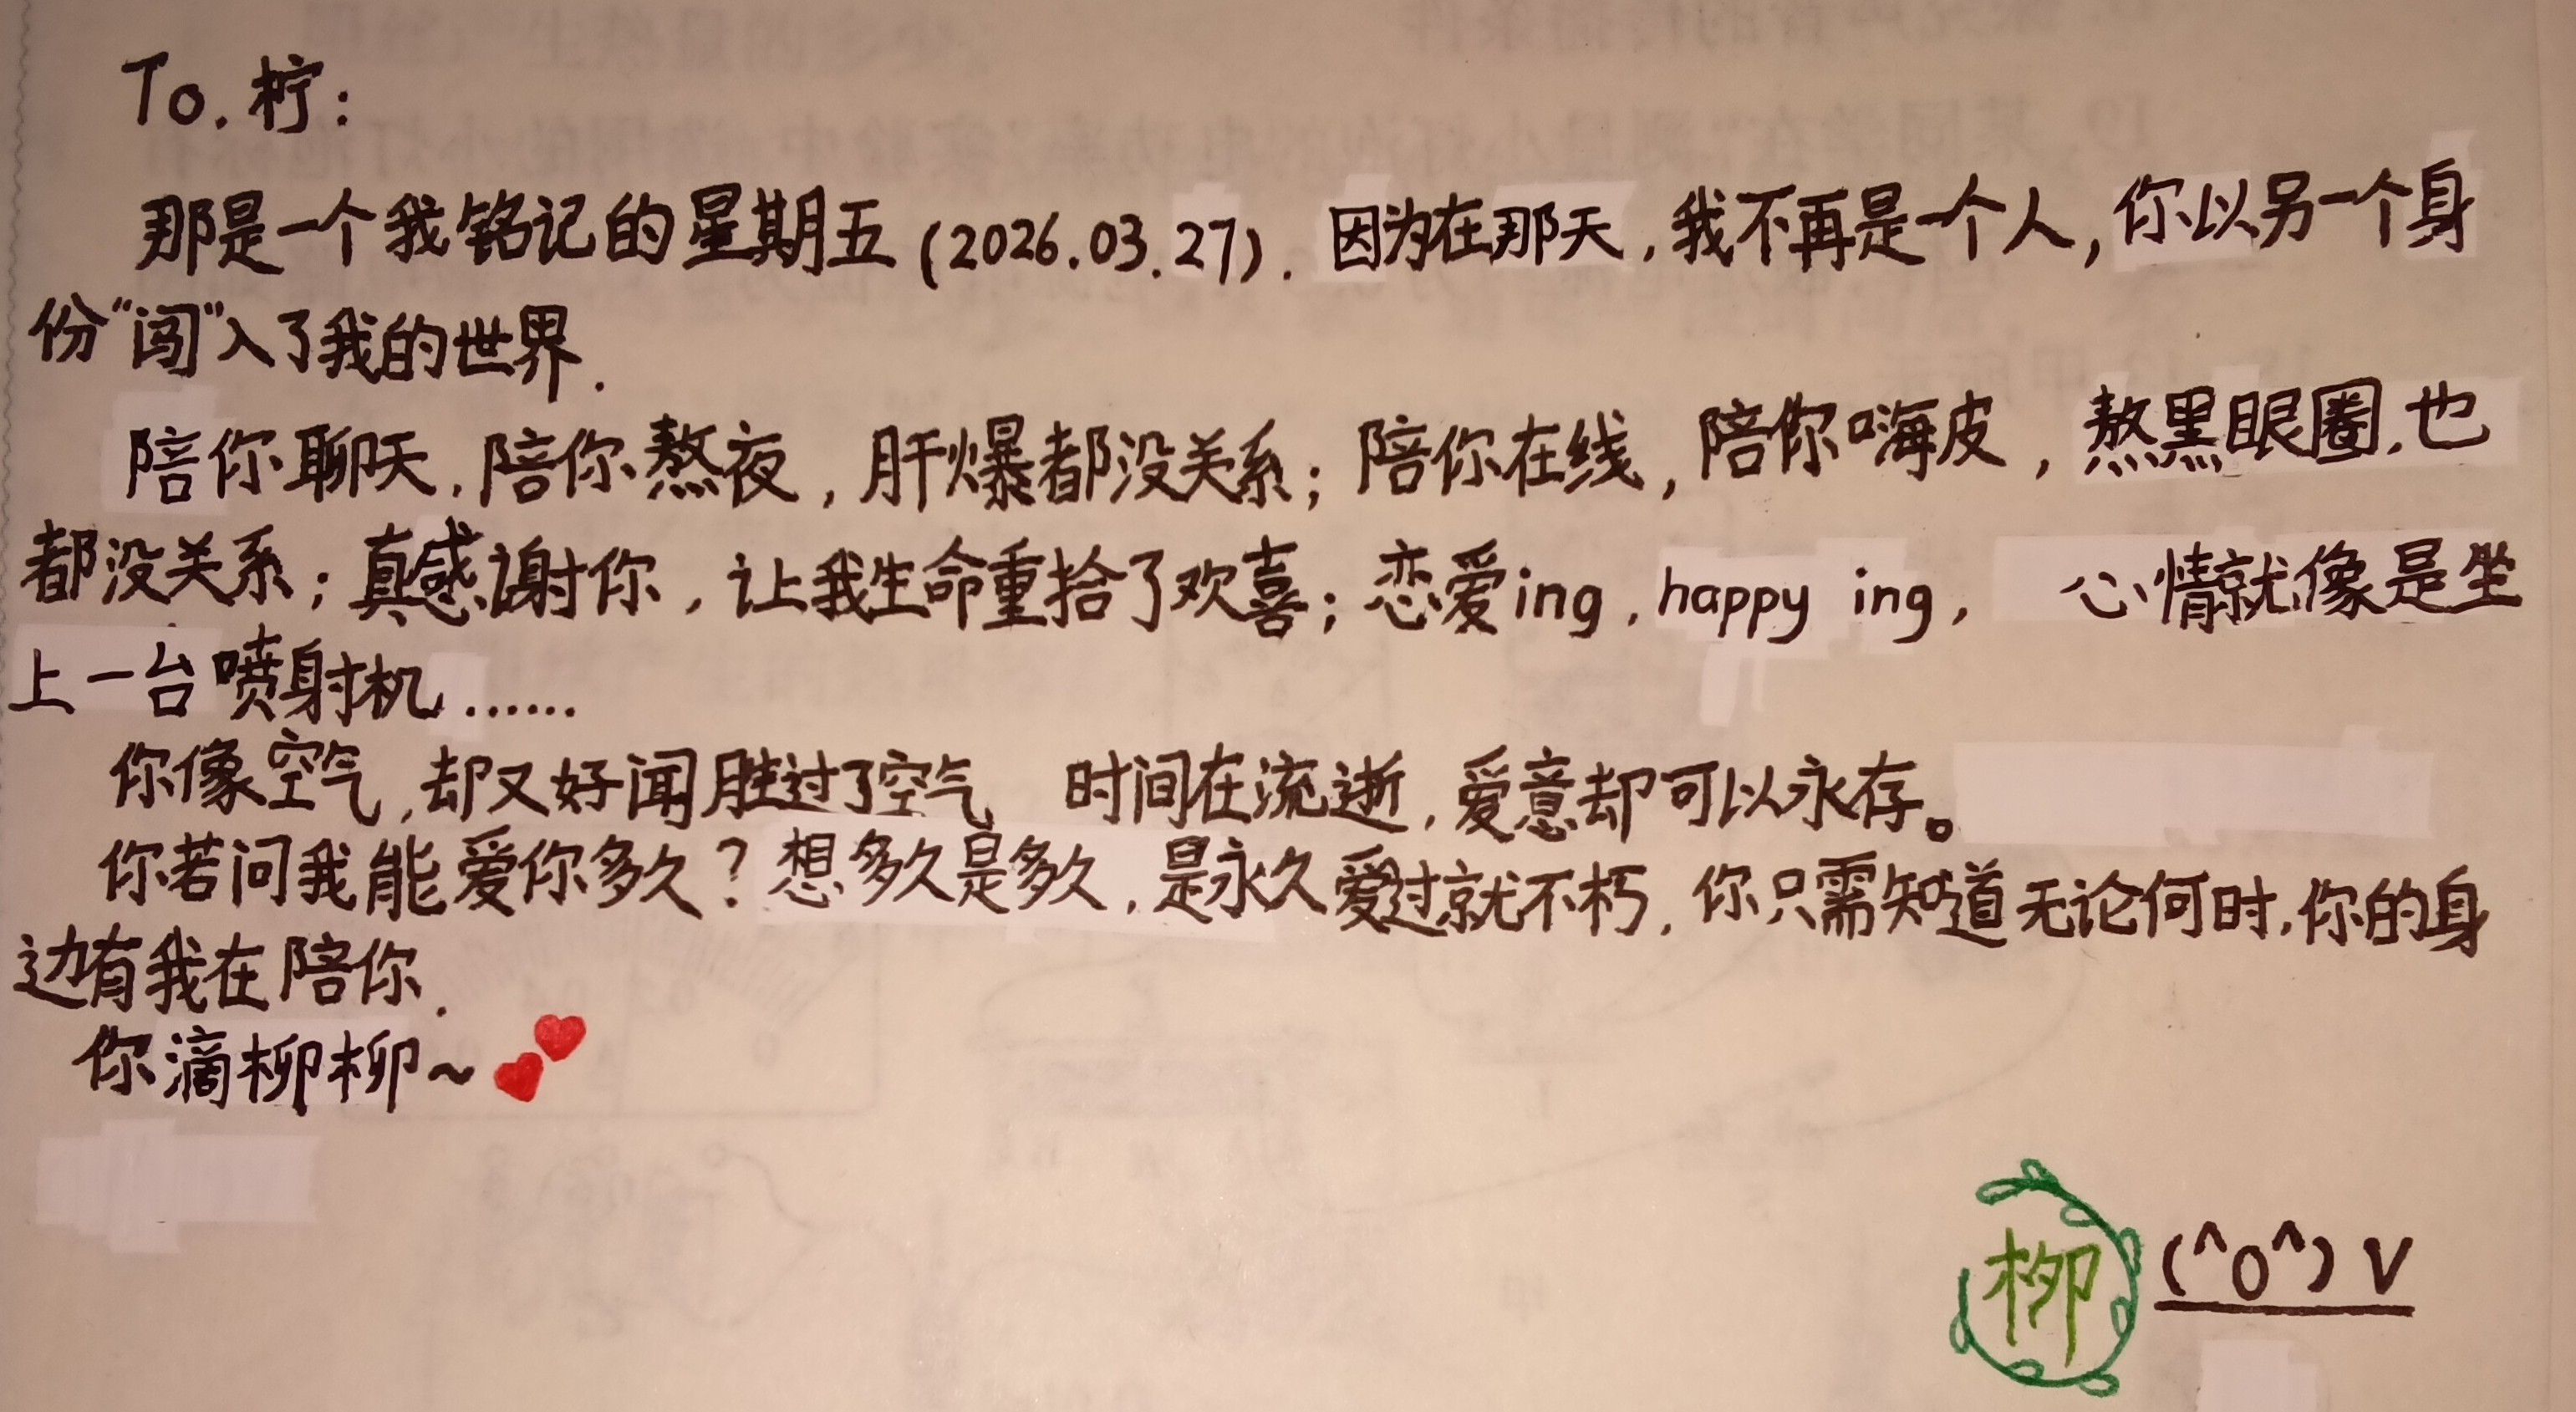 To.柠：
那是一个我铭记的星期五(2026.03.27).因为在那天,我不再是一个人,你以另一个身
份“闯”入了我的世界.
陪你聊天,陪你熬夜,肝爆都没关系;陪你在线,陪你嗨皮,熬黑眼圈,也
都没关系;真感谢你,让我生命重拾了欢喜;恋爱ing,happy ing, 心情就像是坐
上一台喷射机……
你像空气,却又好闻胜过了空气 时间在流逝,爱意却可以永存。
你若问我能爱你多久?想多久是多久,是永久爱过就不朽,你只需知道无论何时,你的身
边有我在陪你.
你滴柳柳~
柳 (^O^)V